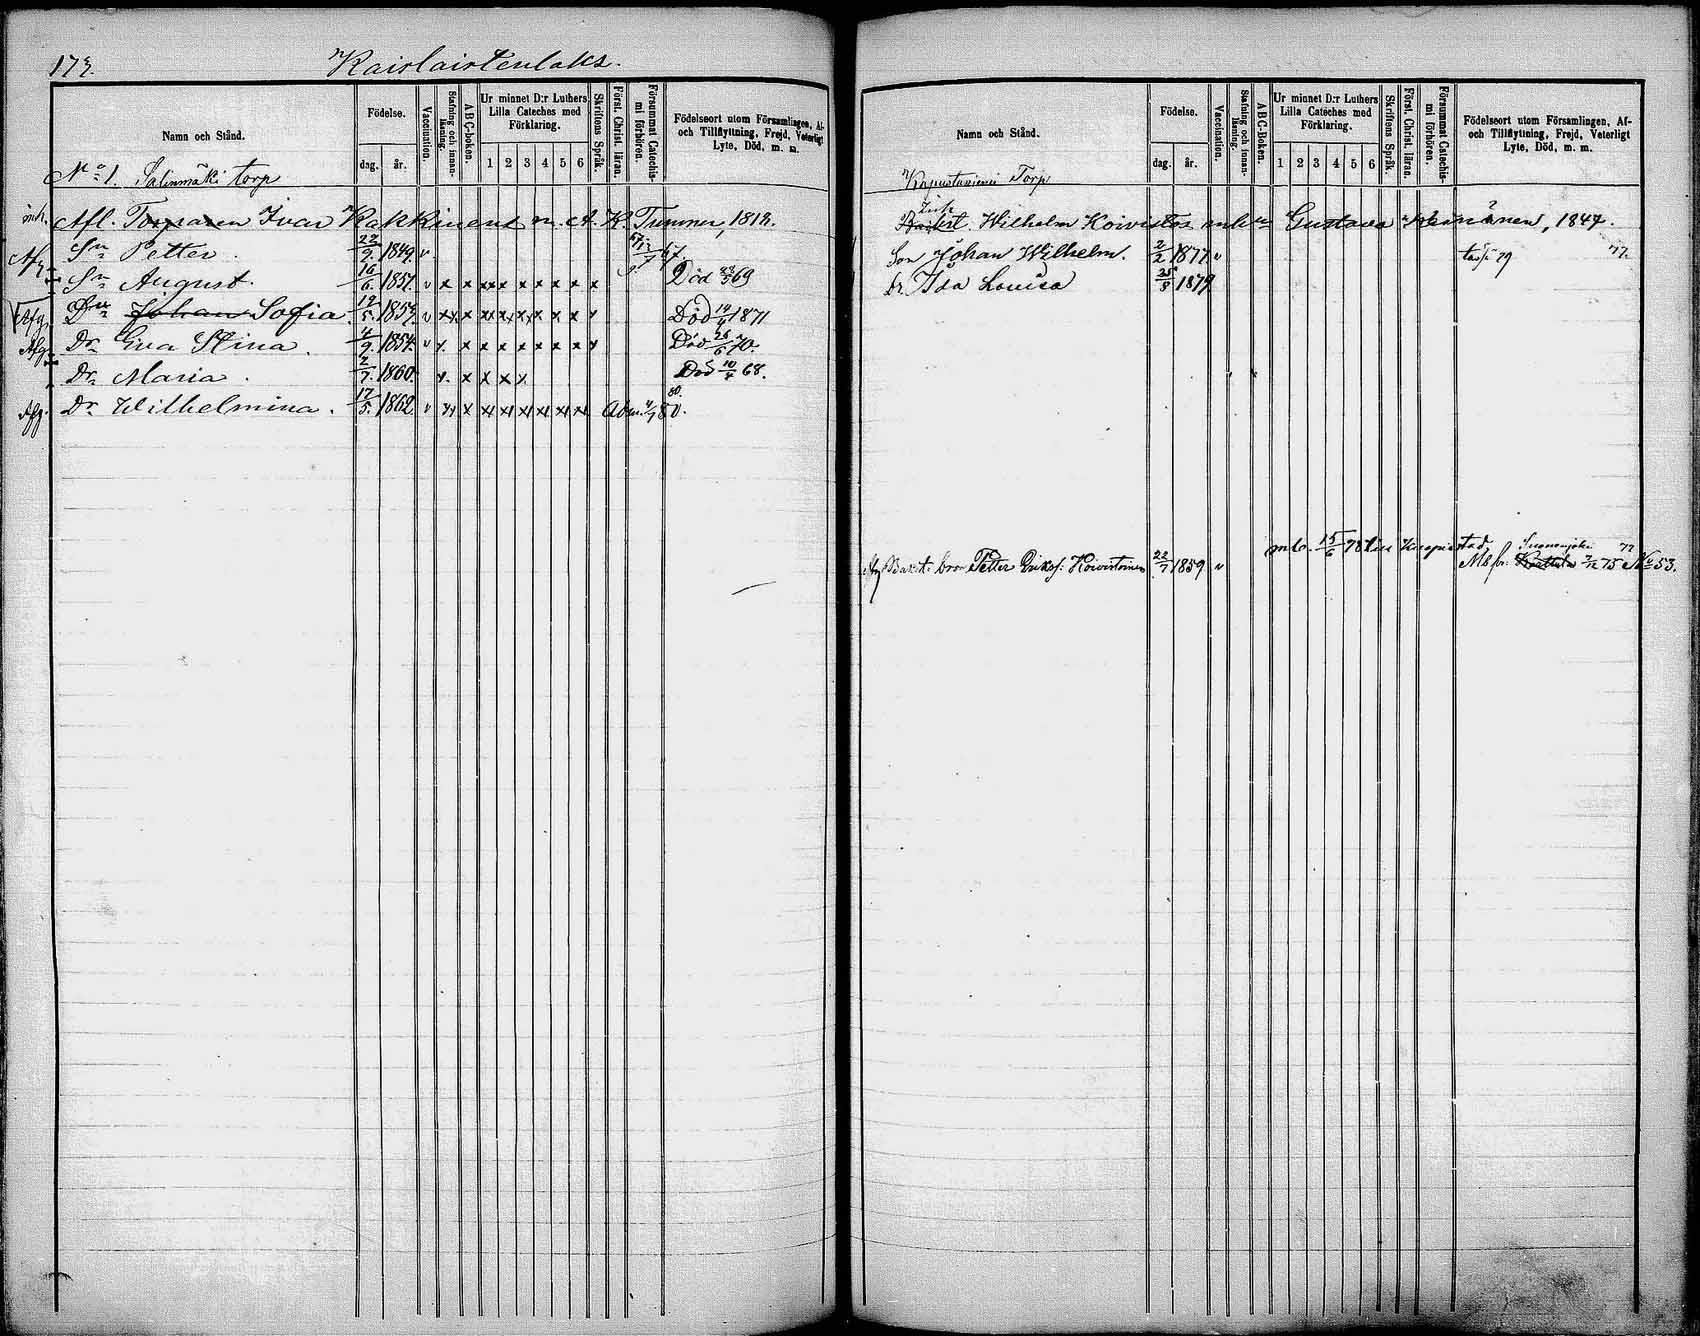 173.
Kaislaistenlaks.
Namn och Stånd.
Födelse.
dag.
år.
Vaccination.
Stafning och innan-läsning.
ABC-boken.
Ur minnet D:r Luthers Lilla Cateches med Förklaring.
1 2 3 4 5 6
Skriftens Språk.
Först. Christ. läran.
Försummat Catechis-mi förhören.
Födelseort utom Församlingen, Af- och Tillflyttning, Frejd, Veterligt Lyte, Död, m. m.
No 1. Salinmäki torp
Afl. Torparen Ivar Kakkinens m. A. K. Tummer, 1812.
Sn Petter. 22/9. 1849. v
Sn August. 16/6. 1851. v x x xx x x x x x x Död 69
Dr Johan Sofia 19/5. 1852. v xx x x x x x x x x Död 1871
Afg. Dr Eva Stina. 4/9. 1854. v x x x x x x x x x Död 26/6 70.
Dr Maria. 2/7. 1860. x x x x x Död 10/4 68.
Afg. Dr Wilhelmina. 17/5. 1862 v x x x x x x x x Adm. 80.
Namn och Stånd.
Födelse.
dag.
år.
Vaccination.
Stafning och innan-läsning.
ABC-boken.
Ur minnet D:r Luthers Lilla Cateches med Förklaring.
1 2 3 4 5 6
Skriftens Språk.
Först. Christ. läran.
Försummat Catechis-mi förhören.
Födelseort utom Församlingen, Af- och Tillflyttning, Frejd, Veterligt Lyte, Död, m. m.
Torp
Inh.
Wilhelm Koivistos Gustava 1847.
Son Johan Wilhelm. 2/2 1877 v 79 77.
Dr. Ida Lovisa 25/8 1879
mb. 15/6 78 Kuopio stad,
Suonenjoki 77
bror Petter Eriksf. Koivistoinen 22/7 1859 v Mb fr. 75 No 53.